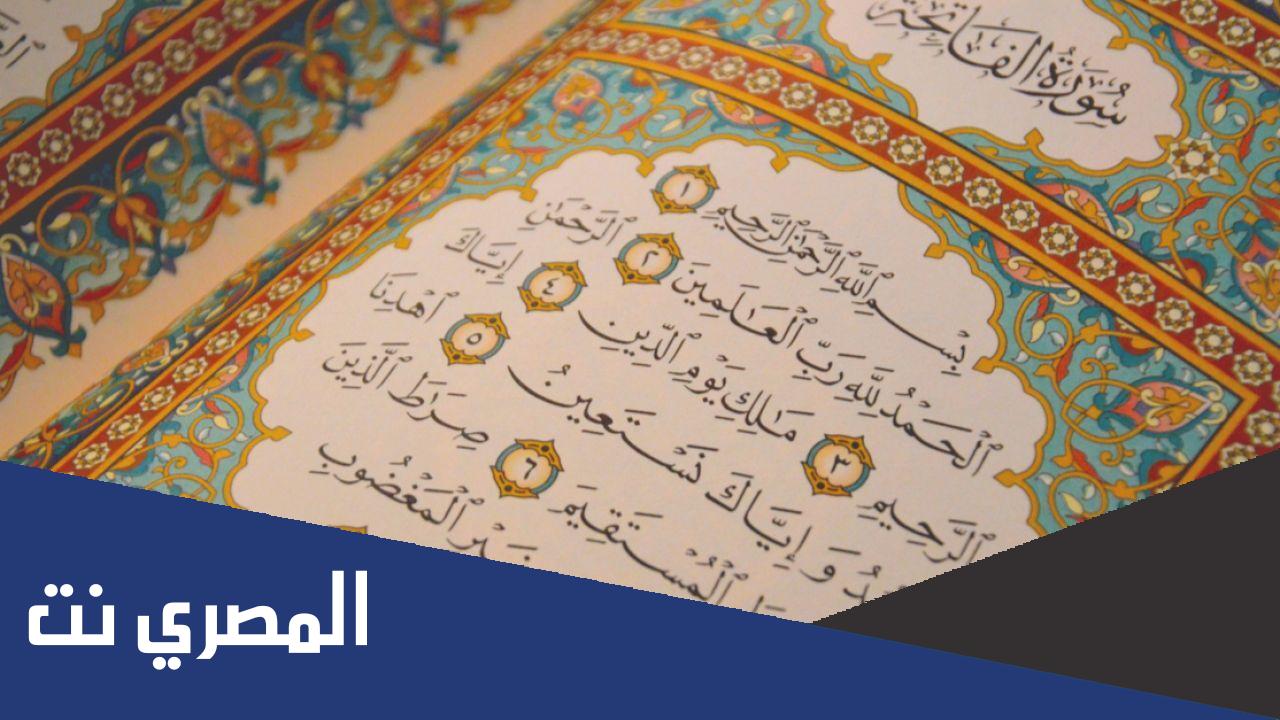 سُورَةُ الفَاتِحَة
بِسْمِ ٱللَّهِ ٱلرَّحْمَٰنِ ٱلرَّحِيمِ ١
ٱلْحَمْدُ لِلَّهِ رَبِّ ٱلْعَٰلَمِينَ ٢ ٱلرَّحْمَٰنِ
ٱلرَّحِيمِ ٣ مَٰلِكِ يَوْمِ ٱلدِّينِ ٤ إِيَّاكَ
وَإِيَّاكَ نَسْتَعِينُ ٥ ٱهْدِنَا
ٱلْمُسْتَقِيمَ ٦ صِرَٰطَ ٱلَّذِينَ
ٱلْمَغْضُوبِ
المصري نت